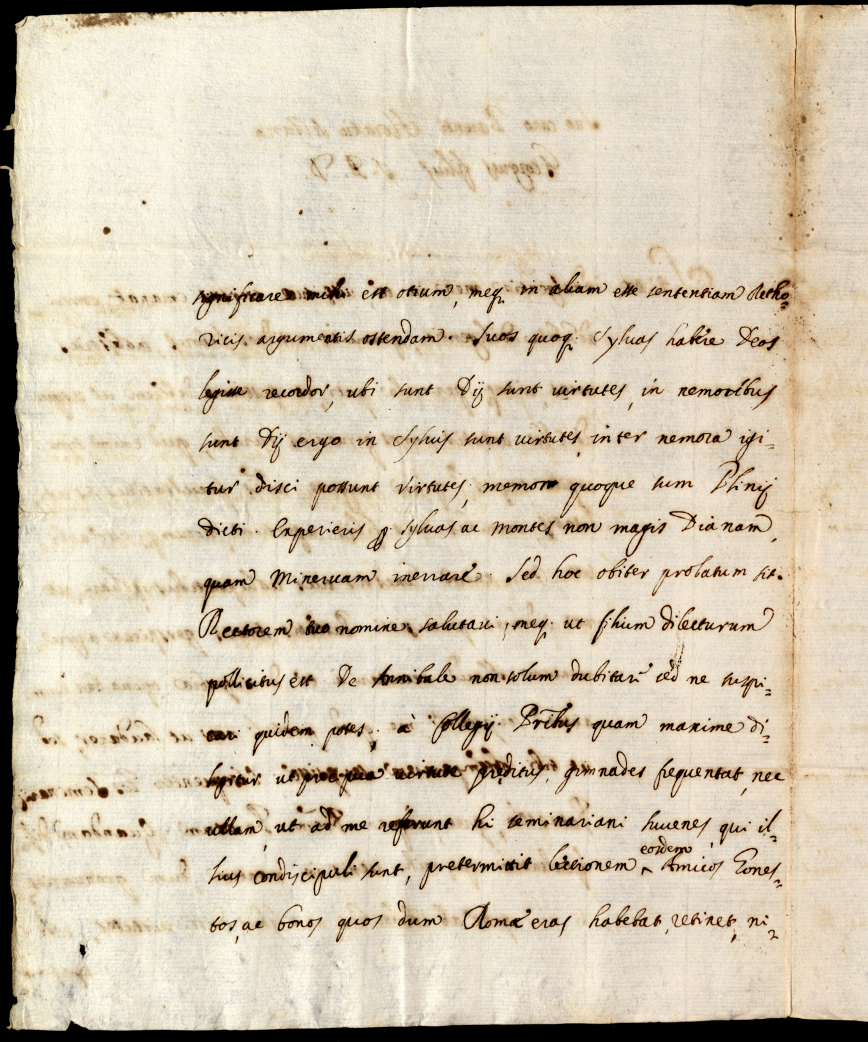 significare mihi est otium, meq. in aliam esse sententiam Retho=
ricis argumentis ostendam. Suos quoq. Sylvas habere Deos
legisse recordor, ubi sunt Dij sunt virtutes, in nemoribus
sunt Dij ergo in Sylvis sunt virtutes, inter nemora igi=
tur disci possunt virtutes, memor quoque sum Plinij
dicti. Experieris sylvas ac montes non magis Dianam,
quam Minervam inerrare. Sed hoc obiter prolatum sit.
Rectorem tuo nomine salutavi, meq. ut filium dilecturum
pollicitus est De Annibale non solum dubitare sed ne suspi=
cari quidem potes, à Collegij Pribus quam maxime di=
ligitur ut precipua virtute preditus, gimnades frequentat, nec
ullam, ut ad me referunt hi seminariani Iuvenes, qui il=
lius condiscipuli sunt, pretermittit lectionem eosdem Amicos Hones=
tos, ac bonos quos dum Romæ eras habebat, retinet, ni=